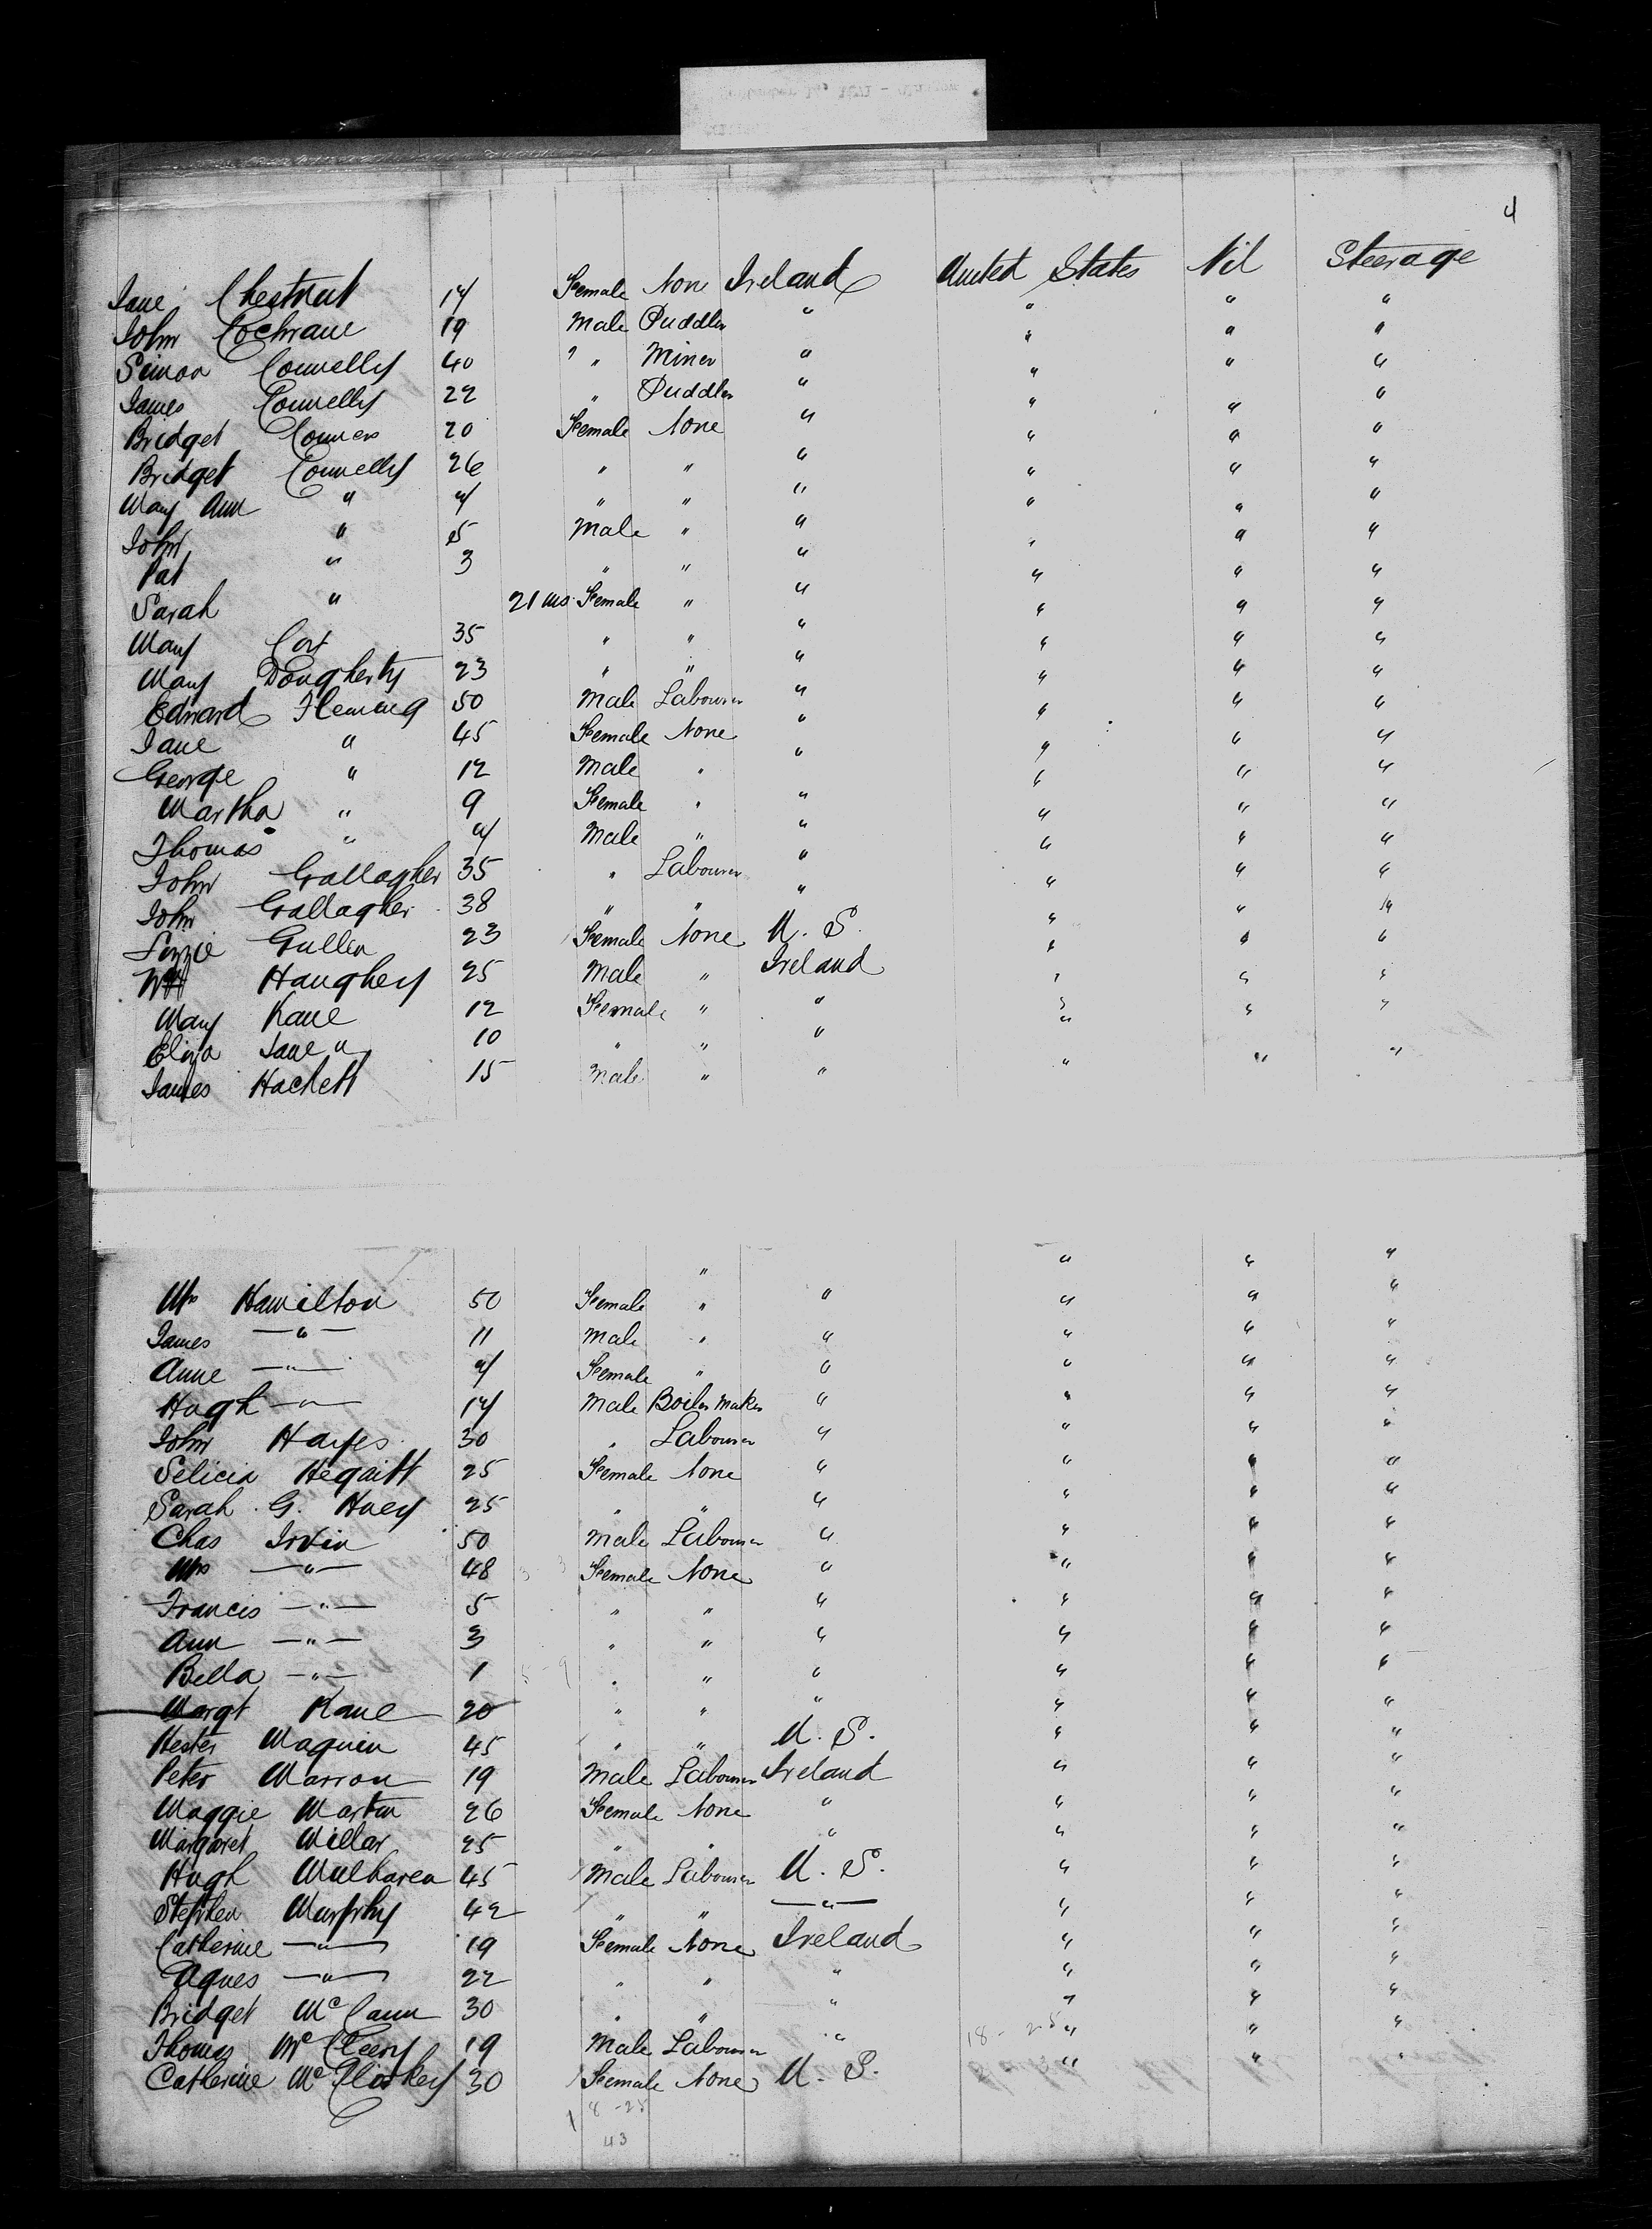 4
Jane Chestnut 17 Female None Ireland United States Nil Steerage
John Cochrane 19 Male Puddler " " " "
Simon Connelly 40 " " Miner " " " "
James Connelly 22 " Puddler " " " "
Bridget Conners 20 Female None " " " "
Bridget Connelly 26 " " " " " "
Mary Ann " 7 " " " " " "
John " 5 Male " " " " "
Pat " 3 " " " " " "
Sarah " 21 ms Female " " " " "
Mary 35 " " " " " "
Mary Dougherty 23 " " " " " "
Edward Fleming 50 Male Labourer " " " "
Jane " 45 Female None " " " "
George " 12 Male " " " " "
Martha " 9 Female " " " " "
Thomas " 7 Male " " " " "
John Gallagher 35 " Labourer " " " "
John Gallagher 38 " " " " " "
Lizzie Gullen 23 Female None U. S. " " "
Haughey 25 Male " Ireland " " "
Mary Kane 12 Female " " " " "
Eliza Jane " 10 " " " " " "
James Hackett 15 Male " " " " "
" " " "
Mrs Hamilton 50 Female " " " " "
James —"— 11 Male " " " " "
Anne —"— 7 Female " " " " "
Hugh —"— 17 Male Boiler Maker " " " "
John Hayes 30 " Labourer " " " "
Selicia Hegaitt 25 Female None " " " "
Sarah G. Huey 25 " " " " " "
Chas Irvin 50 Male Labourer " " " "
Mrs —"— 48 Female None " " " "
Francis —"— 5 " " " " " "
Ann —"— 3 " " " " " "
Bella —"— 1 " " " " " "
Margt Kane 20 " " " " " "
Hester Maguin 45 " " U. S. " " "
Peter Marron 19 Male Labourer Ireland " " "
Maggie Martin 26 Female None " " " "
Margaret Millar 25 " " " " " "
Hugh Mulharen 45 Male Labourer U. S. " " "
Stephen Murphy 42 " " —"— " " "
Catherine —"— 19 Female None Ireland " " "
Agnes —"— 22 " " " " " "
Bridget McCann 30 " " " " " "
Thomas McCleery 19 Male Labourer " 18 - 25 " " "
Catherine McCloskey 30 Female None U. S. " " "
18 - 25
43